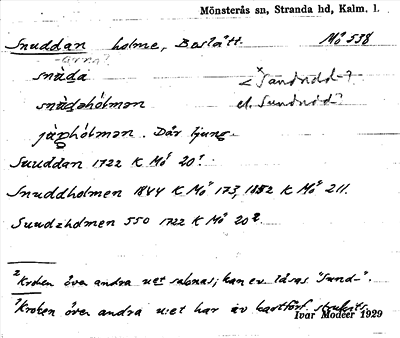 Mönsterås sn, Stranda hd, Kalm. l.
Snuddan holme, Boslätt. Mö 538
snùda
< *Sandudd-?
snùdahólmen
el. Sundudd?
jǻphólmen. Där ljung.
Suuddan 1722 K Mö 20¹.
Snuddholmen 1844 K Mö 173, 1852 K Mö 211.
Suudzholmen 550 1722 K Mö 20².
² Kroken över andra u:et saknas; kan ev. läsas "Sund-".
¹ Kroken över andra u:et har av kartförf. strukits.
Ivar Modéer 1929